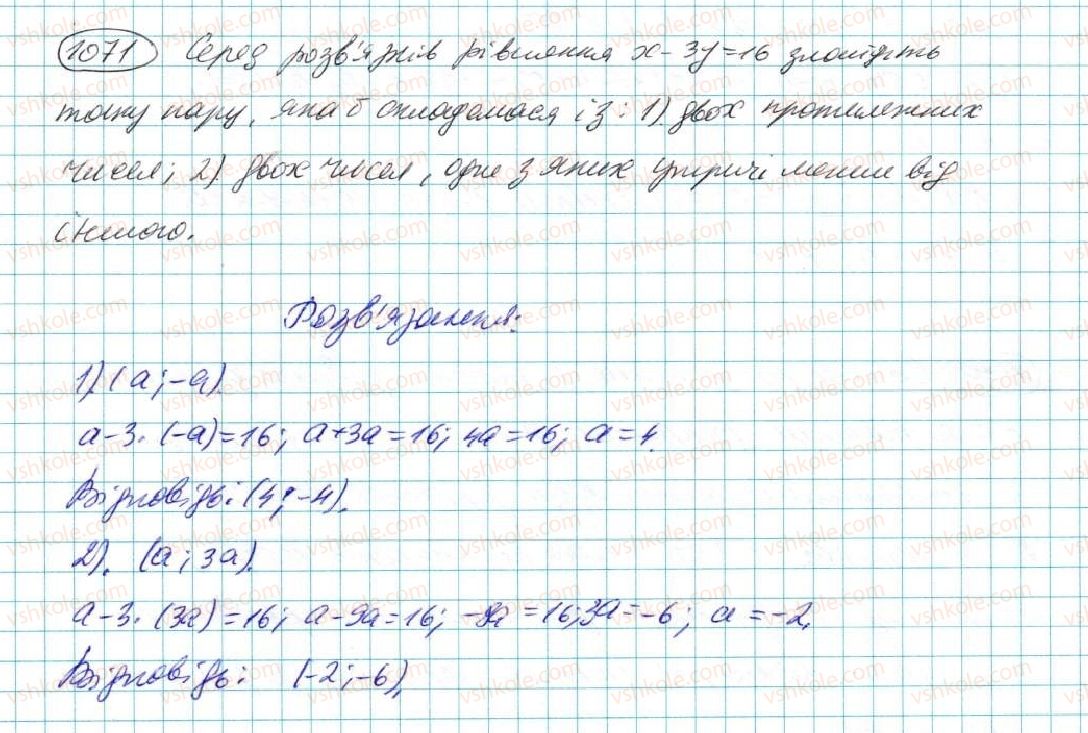 1071 Серед розв'язків рівняння x - 3y = 16 знайдіть
таку пару, яка б складалася із: 1) двох протилежних
чисел; 2) двох чисел, одне з яких утричі менше від
іншого.
Розв'язання:
1) (a; -a).
a - 3·(-a) = 16; a + 3a = 16; 4a = 16; a = 4.
Відповідь: (4; -4).
2). (a; 3a).
a - 3·(3a) = 16; a - 9a = 16; -8a = 16; 3a = -6; a = -2.
Відповідь: (-2; -6).